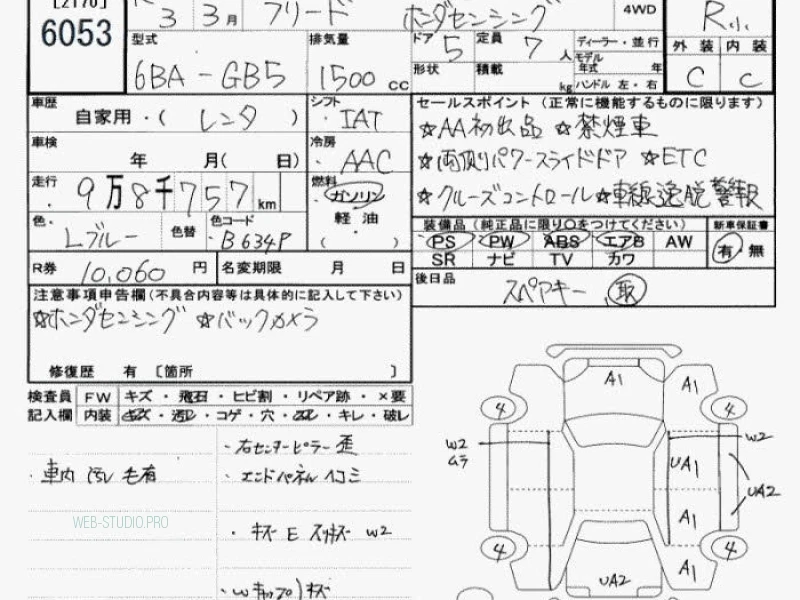 [2170]
6053
R 3 3月 フリード ホンダセンシング 4WD R小
型式 6BA-GB5
排気量 1500 cc
ドア 5 定員 7 人
ディーラー・並行
モデル年式 年
形状 積載 kg ハンドル 左・右
外装 内装
C C
車歴 自家用・(レンタ)
シフト IAT
車検 年 月( 日)
冷房 AAC
走行 9万8千757 km
燃料 ガソリン
軽油
( )
色 Lブルー 色替 色コード B634P
R券 10,060 円 名変期限 月 日
セールスポイント(正常に機能するものに限ります)
☆AA初出品 ☆禁煙車
☆両側パワースライドドア ☆ETC
☆クルーズコントロール☆車線逸脱警報
装備品(純正品に限り○をつけてください) 新車保証書
PS PW ABS エアB AW
SR ナビ TV カワ
有・無
後日品
スペアキー 取
注意事項申告欄(不具合内容等は具体的に記入して下さい)
☆ホンダセンシング ☆バックカメラ
修復歴 有 〔箇所 〕
検査員 FW キズ・飛石・ヒビ割・リペア跡・×要
記入欄 内装 キズ・汚レ・コゲ・穴・ キレ・破レ
・車内 汚レ 毛有
・右センターピラー 歪
・エンドパネル 凹コミ
・キズ E スリキズ W2
WEB-STUDIO.PRO
A1 A1
4 4
W2
ムラ
W2
UA1
UA2
A1
4 4
A1
UA2